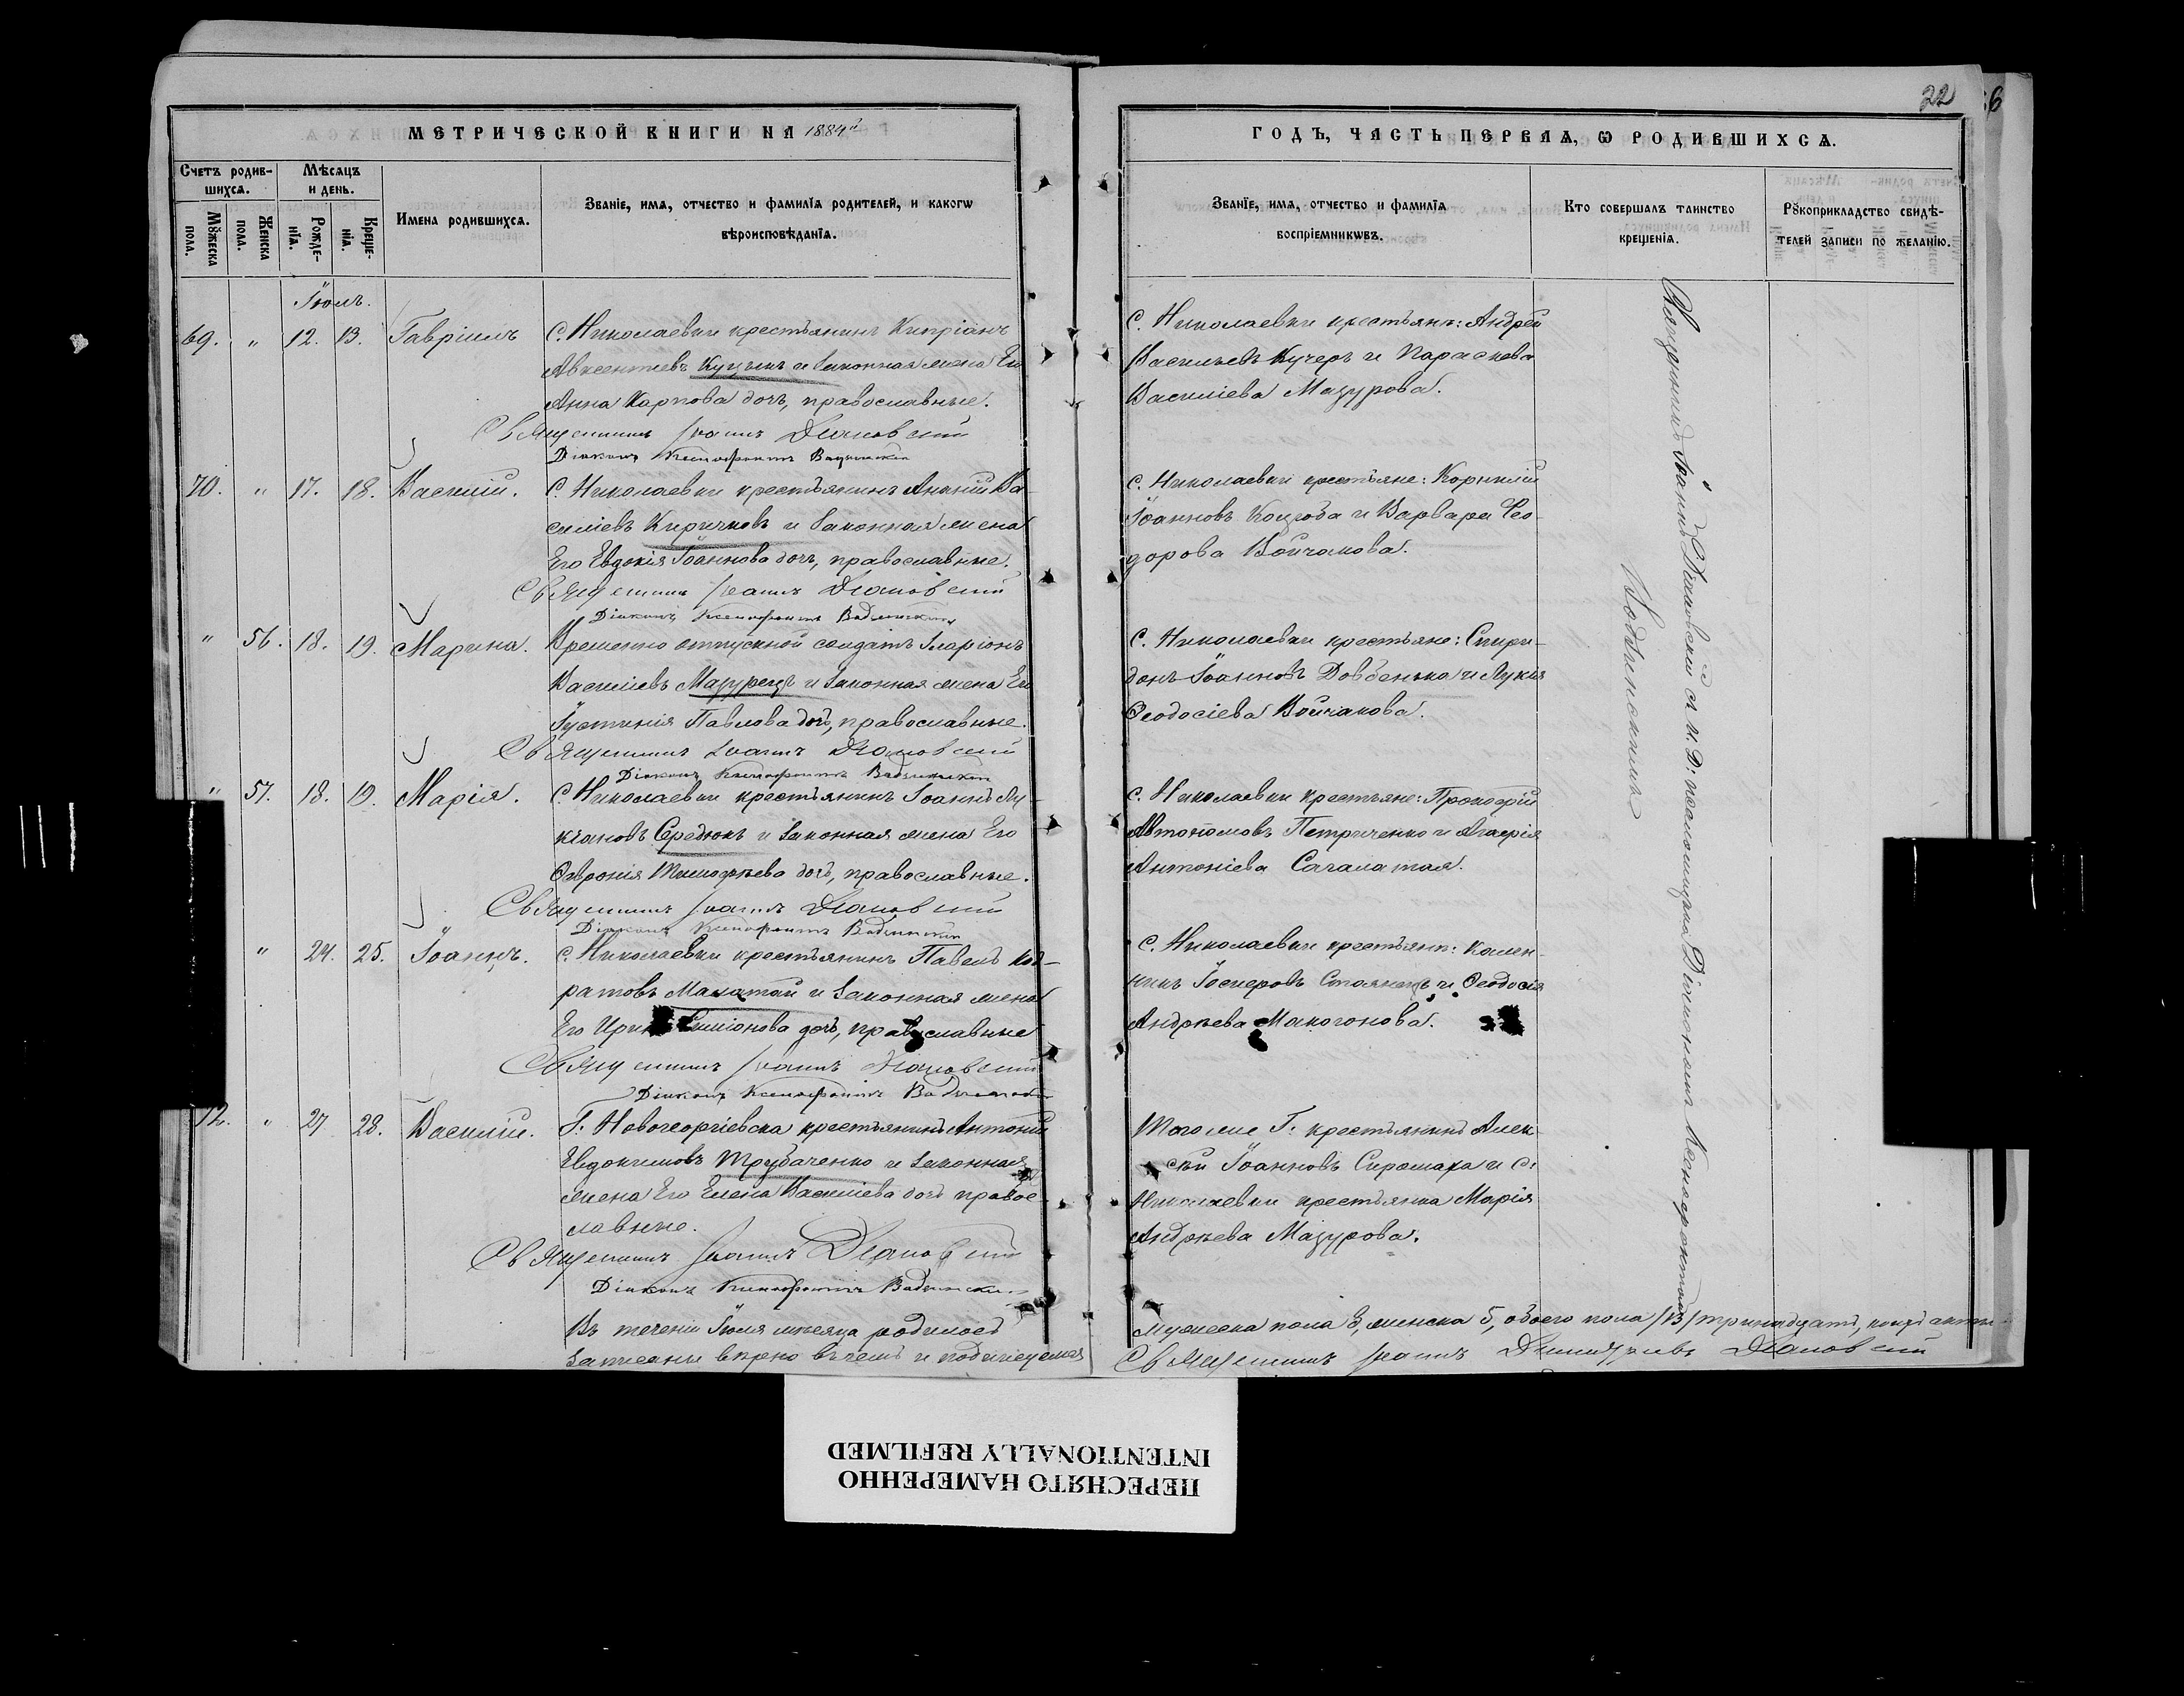 22
МЕТРИЧЕСКОЙ КНИГИ НА 1884й
ГОДЪ, ЧАСТЬ ПЕРВАѦ, Ѡ РОДИВШИХСѦ.
Счетъ родив-
шихсѧ.
Мꙋжеска
пола.
Женска
пола.
Мѣсѧцъ
и день.
Рожде-
нїѧ.
Креще-
нїѧ.
Имена родившихсѧ.
Званїе, имѧ, отчество и фамилїѧ родителей, и какогѡ
вѣроисповѣданїѧ.
Званїе, имѧ, отчество и фамилїѧ
воспрїемникѡвъ.
Кто совершалъ таинство
крещенїѧ.
Рꙋкоприкладство свидѣ-
телей записи по желанїю.
Іюль.
69. " 12. 13. Гавріилъ
С. Николаевки крестьянинъ Кипріанъ
Авксентіевъ Куцынъ и законная жена Его
Анна Карпова дочь, православные.
Священникъ Іоаннъ Диановскій
Діаконъ Ксенофонтъ Водзинскій
С. Николаевки крестьяне: Андрей
Васильевъ Кучеръ и Параскева
Василіева Мазурова.
70. " 17. 18. Василій.
С. Николаевки крестьянинъ Ва-
силіевъ Киричковъ и законная жена
Его Евдокія Іоаннова дочь, православные.
Священникъ Іоаннъ Диановскій
Діаконъ Ксенофонтъ Водзинскій
С. Николаевки крестьяне: Корнилій
Іоанновъ Коцюба и Варвара Ѳео-
дорова Войчакова.
" 56. 18. 19. Марина.
Временно отпускной солдатъ Иларіонъ
Василіевъ Мазурецъ и законная жена Его
Іустинія Павлова дочь, православные.
Священникъ Іоаннъ Диановскій
Діаконъ Ксенофонтъ Водзинскій
С. Николаевки крестьяне: Спири-
донъ Іоанновъ Довбенько и Лукія
Ѳеодосіева Войчакова.
" 57. 18. 19. Марія.
С. Николаевки крестьянинъ Іоаннъ Лу-
кіановъ Середюкъ и законная жена Его
Ѳевронія Тимоѳѣева дочь, православные.
Священникъ Іоаннъ Диановскій
Діаконъ Ксенофонтъ Водзинскій
С. Николаевки крестьяне: Прокофій
Автономовъ Петриченко и Агафія
Антоніева Сагалатая.
" 24. 25. Іоаннъ.
С. Николаевки крестьянинъ Павелъ Код-
ратовъ Малатай и законная жена
Его Симіонова дочь, православные
Священникъ Іоаннъ Диановскій
Діаконъ Ксенофонтъ Водзинскій
С. Николаевки крестьяне: Калин-
никъ Іосифовъ Стоянецъ и Ѳеодосія
Андрѣева Макогонова.
72. " 27 28. Василій.
Г. Новогеоргіевска крестьянинъ Антоній
Евдокимовъ Трубаченко и законная
жена Его Елена Василіева дочь право-
славные.
Священникъ Іоаннъ Диановскій
Діаконъ Ксенофонтъ Водзинскій
Того же Г. крестьянинъ Алек-
сѣй Іоанновъ Сиромаха и С.
Николаевки крестьянка Марія
Андрѣева Мазурова.
Священникъ Іоаннъ Диановскій съ И. Д. псаломщика Діакономъ Ксенофонтомъ
Водзинскимъ
Въ теченіи Іюля мѣсяца родилось
Мужеска пола 8, женска 5, обоего пола /13/ тринадцать,
записаны вѣрно въ чемъ и подписуемся
Священникъ Іоаннъ Димитріевъ Диановскій
ПЕРЕСНЯТО НАМЕРЕННО
INTENTIONALLY REFILMED